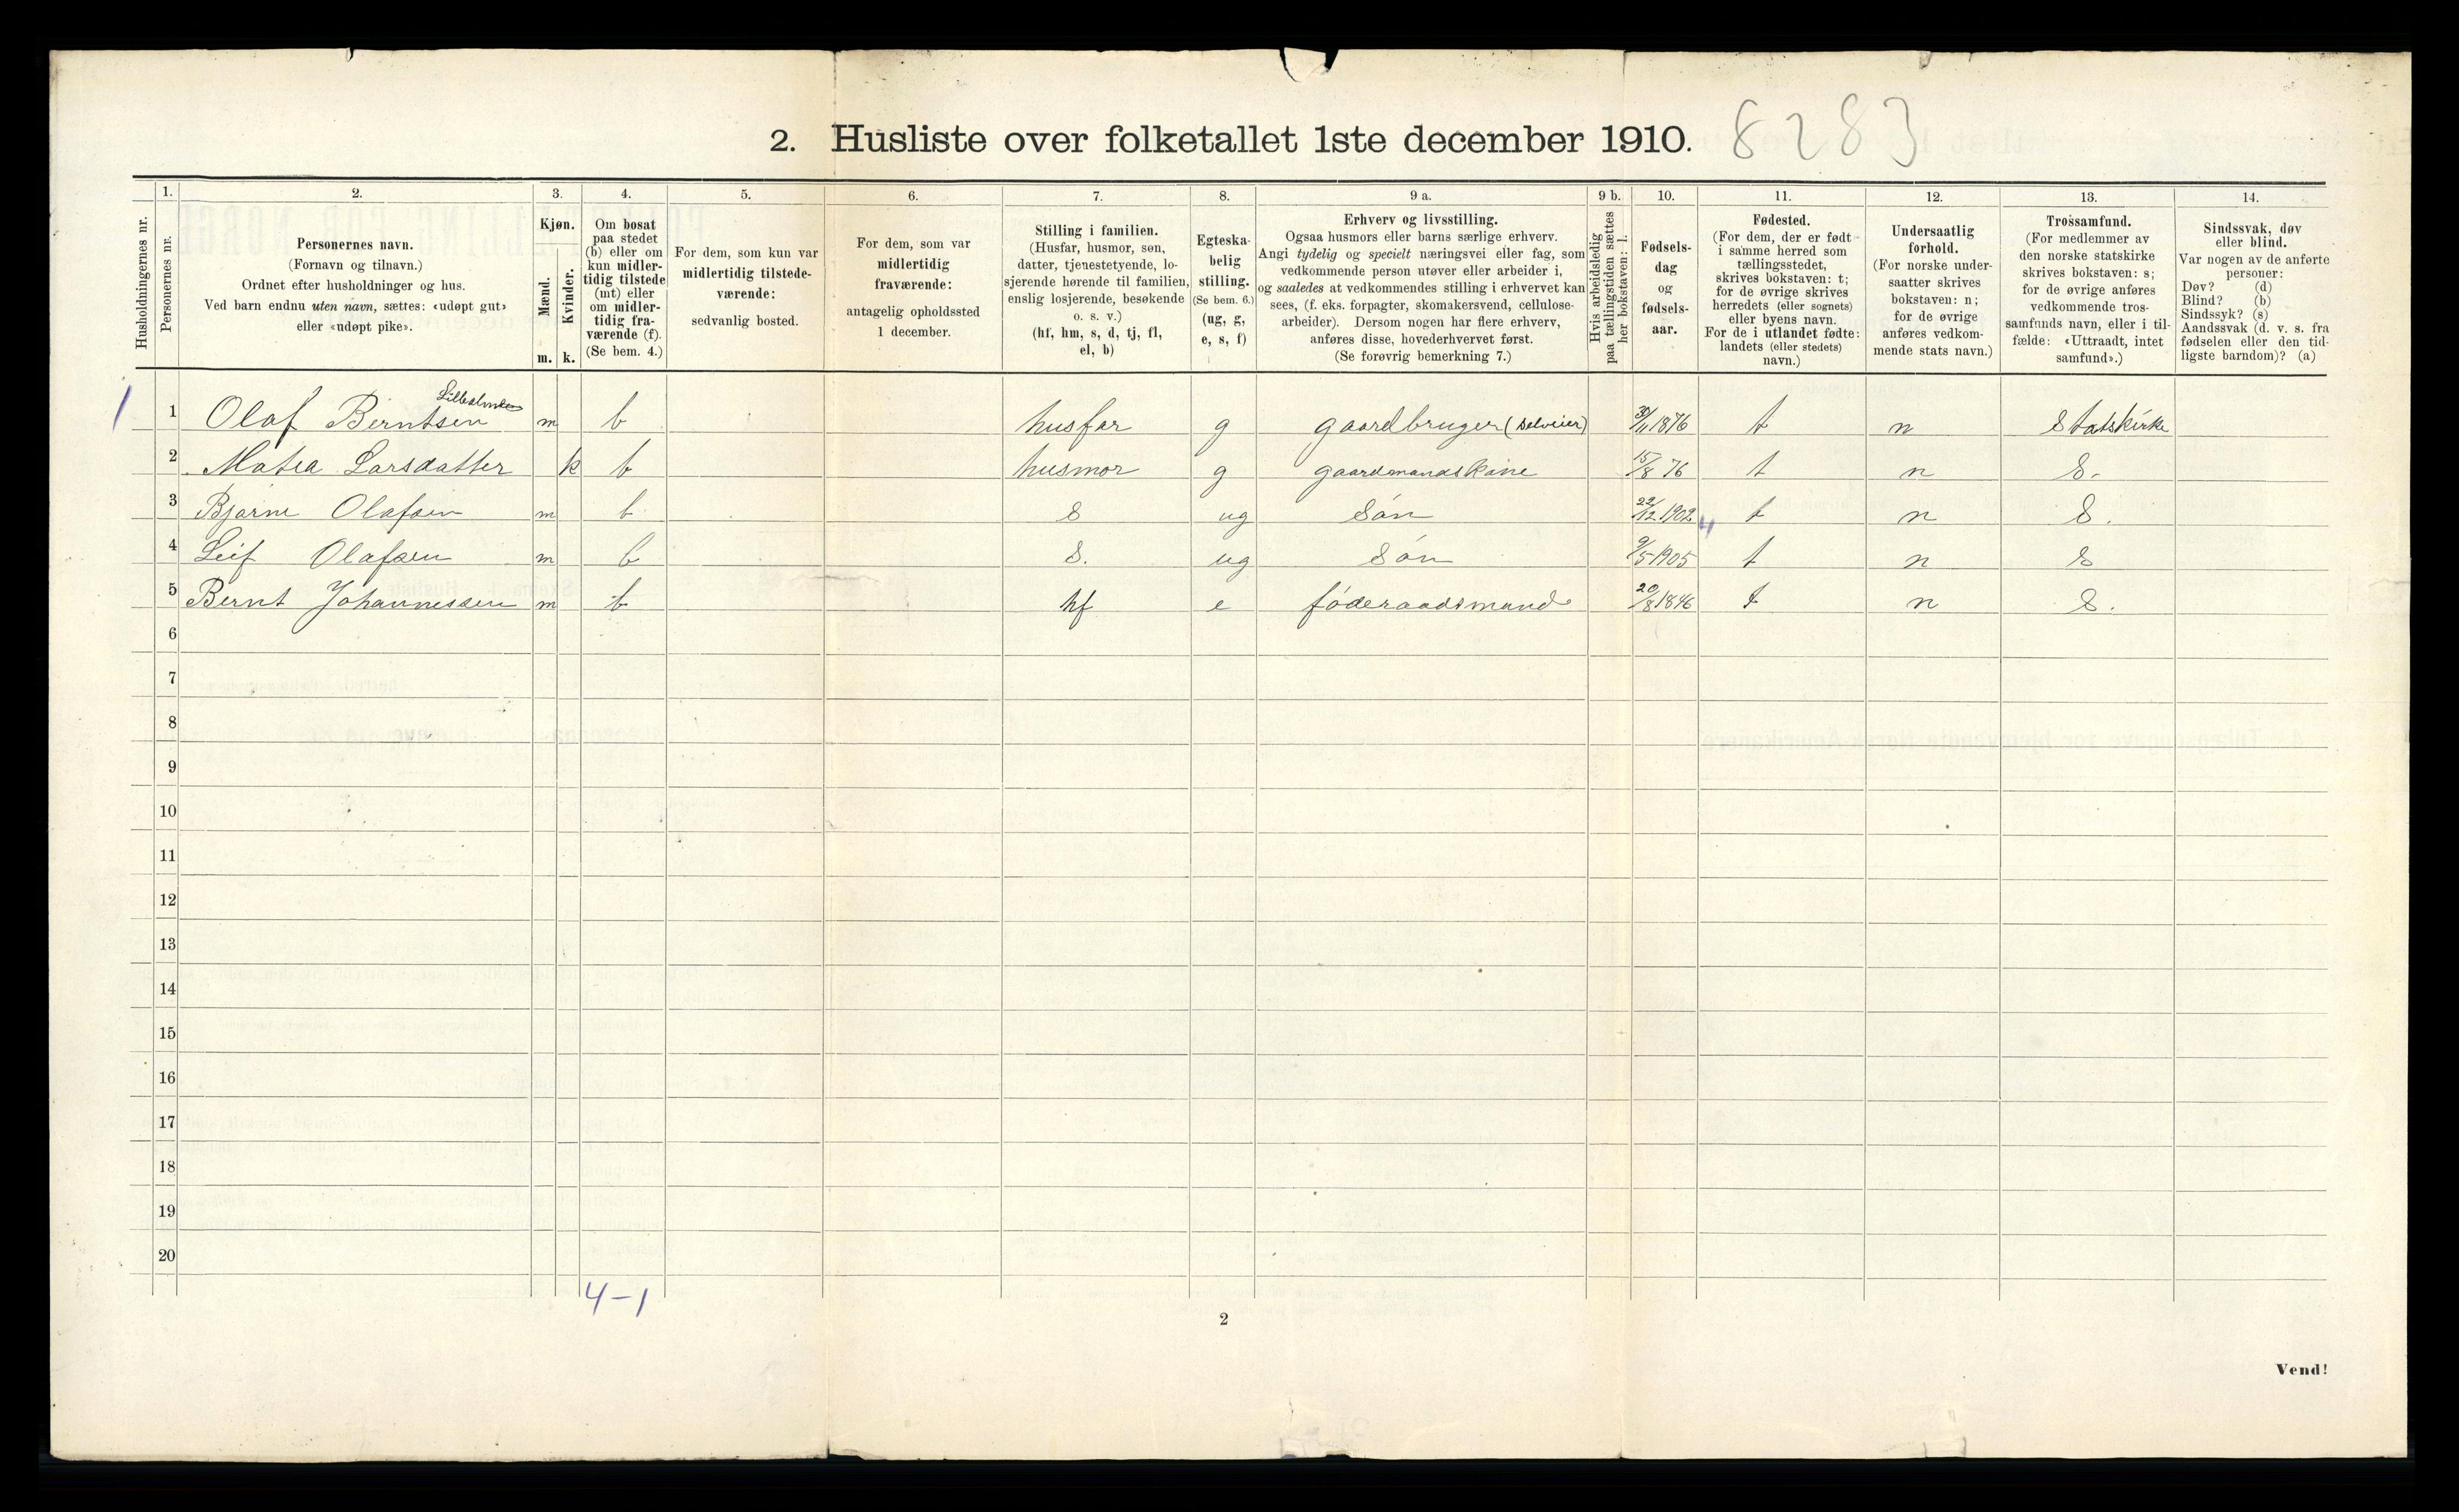 2. Husliste over folketallet 1ste december 1910. 8283
Husholdningernes nr.
1.
Personernes nr.
2.
Personernes navn.
(Fornavn og tilnavn.)
Ordnet efter husholdninger og hus.
Ved barn endnu uten navn, sættes: «udøpt gut»
eller «udøpt pike».
3.
Kjøn.
Mænd.
Kvinder.
m. k.
4.
Om bosat
paa stedet
(b) eller om
kun midler-
tidig tilstede
(mt) eller
om midler-
tidig fra-
værende (f).
(Se bem. 4.)
5.
For dem, som kun var
midlertidig tilstede-
værende:
sedvanlig bosted.
6.
For dem, som var
midlertidig
fraværende:
antagelig opholdssted
1 december.
7.
Stilling i familien.
(Husfar, husmor, søn,
datter, tjenestetyende, lo-
sjerende hørende til familien,
enslig losjerende, besøkende
o. s. v.)
(hf, hm, s, d, tj, fl,
el, b)
8.
Egteska-
belig
stilling.
(Se bem. 6.)
(ug, g,
e, s, f)
9 a.
Erhverv og livsstilling.
Ogsaa husmors eller barns særlige erhverv.
Angi tydelig og specielt næringsvei eller fag, som
vedkommende person utøver eller arbeider i,
og saaledes at vedkommendes stilling i erhvervet kan
sees, (f. eks. forpagter, skomakersvend, cellulose-
arbeider). Dersom nogen har flere erhverv,
anføres disse, hovederhvervet først.
(Se forøvrig bemerkning 7.)
9 b.
Hvis arbeidsledig
paa tællingstiden sættes
her bokstaven: l.
10.
Fødsels-
dag
og
fødsels-
aar.
11.
Fødested.
(For dem, der er født
i samme herred som
tællingsstedet,
skrives bokstaven: t;
for de øvrige skrives
herredets (eller sognets)
eller byens navn.
For de i utlandet fødte:
landets (eller stedets)
navn.)
12.
Undersaatlig
forhold.
(For norske under-
saatter skrives
bokstaven: n;
for de øvrige
anføres vedkom-
mende stats navn.)
13.
Trossamfund.
(For medlemmer av
den norske statskirke
skrives bokstaven: s;
for de øvrige anføres
vedkommende tros-
samfunds navn, eller i til-
fælde: «Uttraadt, intet
samfund».)
14.
Sindssvak, døv
eller blind.
Var nogen av de anførte
personer:
Døv? (d)
Blind? (b)
Sindssyk? (s)
Aandssvak (d. v. s. fra
fødselen eller den tid-
ligste barndom)? (a)
1 1 Olaf Berntsen m b husfar g gaardbruger (Selveier) 30/11 1876 t n Statskirke
2 Matea Larsdatter k b husmor g gaardmandskone 15/8 76 t n S.
3 Bjarne Olafsen m b S ug Søn 22/12 1902 4 t n S.
4 Leif Olafsen m b S. ug Søn 9/5 1905 t n S
5 Bernt Johannessen m b hf e føderaadsmand 20/8 1846 t n S.
6
7
8
9
10
11
12
13
14
15
16
17
18
19
20
4-1
2
Vend!